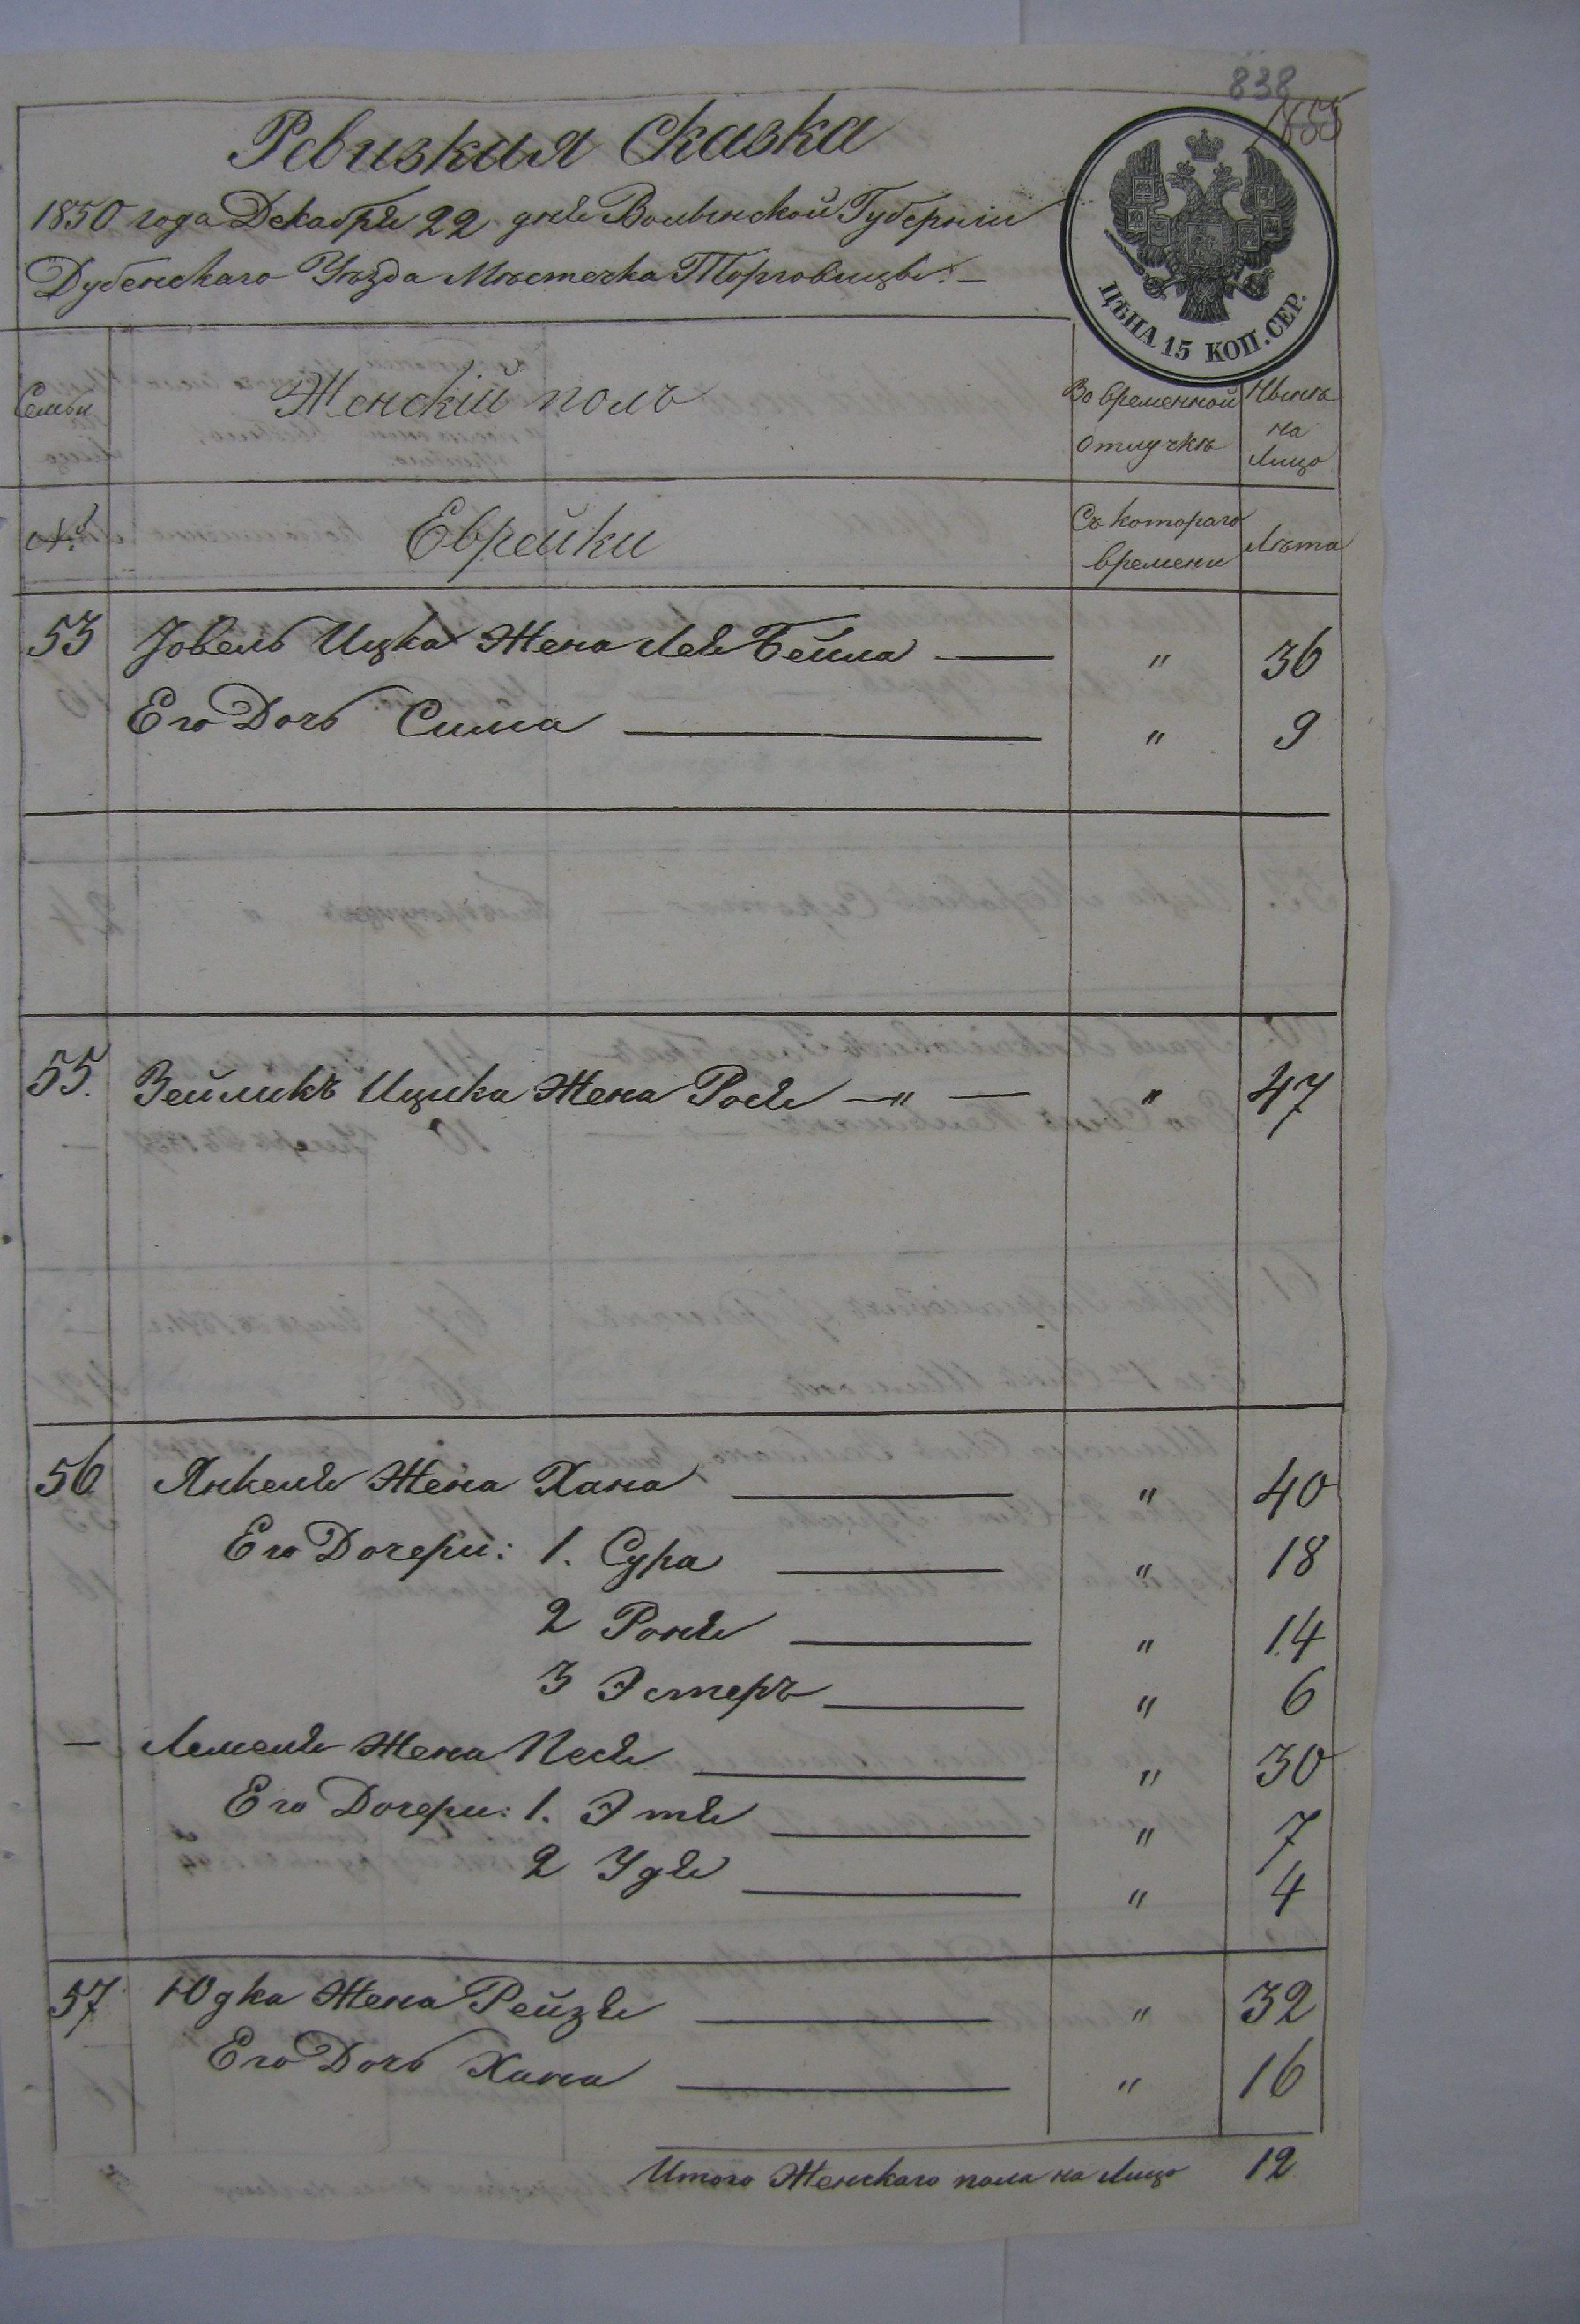 838
1855
Ревизкия Сказка
1850 года Декабря 22 дня Волынской Губерніи
Дубенскаго Уѣзда Мѣстечка Торговицы. —
ЦѢНА 15 КОП. СЕР.
Семьи Женскій полъ Во временной отлучкѣ Нынѣ на Лицо
№ Еврейки Съ котораго времени Лѣта
53 Іовель Ицка Жена Лея Бейла — " 36
Его Дочь Сима — " 9
55. Зейликъ Ицика Жена Рося — " — " 47
56 Янкеля Жена Хана — " 40
Его Дочери: 1. Сура — " 18
2 Роня — " 14
3 Эстеръ — " 6
— Лемеля Жена Песя — " 30
Его Дочери: 1. Этя — " 7
2 Удя — " 4
57 Юдка Жена Рейзя — " 32
Его Дочь Хана — " 16
Итого Женскаго пола на Лицо 12